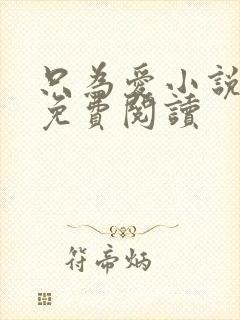 只為愛小說
免費閱讀
符帝炳